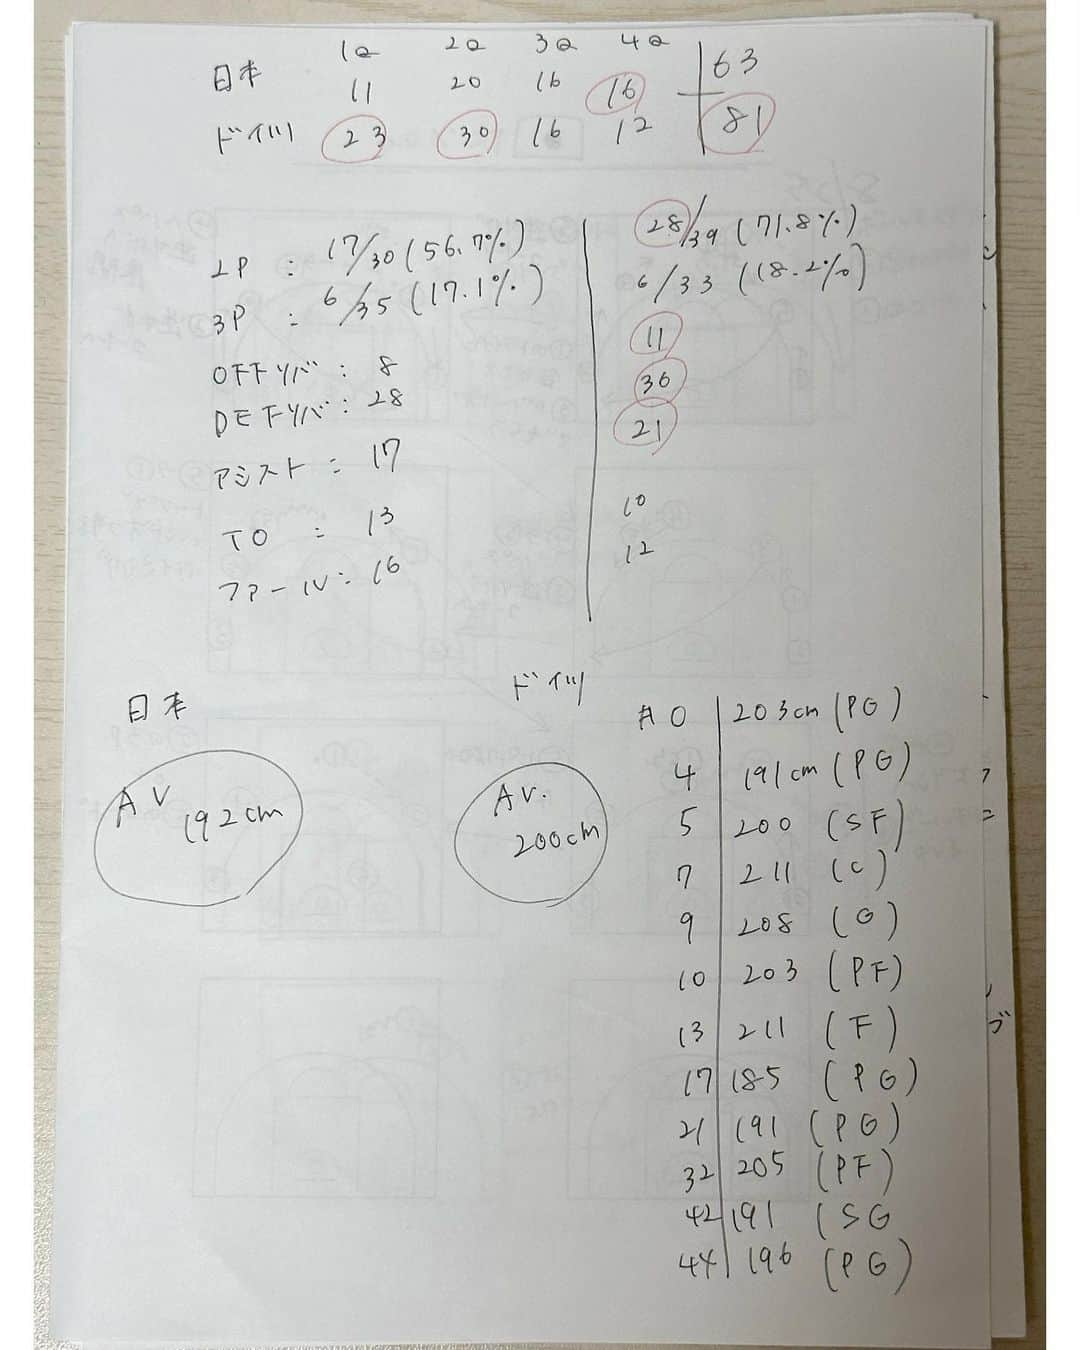 1Q 2Q 3Q 4Q
日本 11 20 16 16 63
ドイツ 23 30 16 12 81
2P : 17/30 (56.7%) 28/39 (71.8%)
3P : 6/35 (17.1%) 6/33 (18.2%)
OFFリバ : 8 11
DEFリバ : 28 36
アシスト : 17 21
TO : 13 10
ファール : 16 12
日本 ドイツ
AV 192cm
AV. 200cm
#0 203cm (PG)
4 191cm (PG)
5 200 (SF)
7 211 (C)
9 208 (G)
10 203 (PF)
13 211 (F)
17 185 (PG)
21 191 (PG)
32 205 (PF)
42 191 (SG
44 196 (PG)